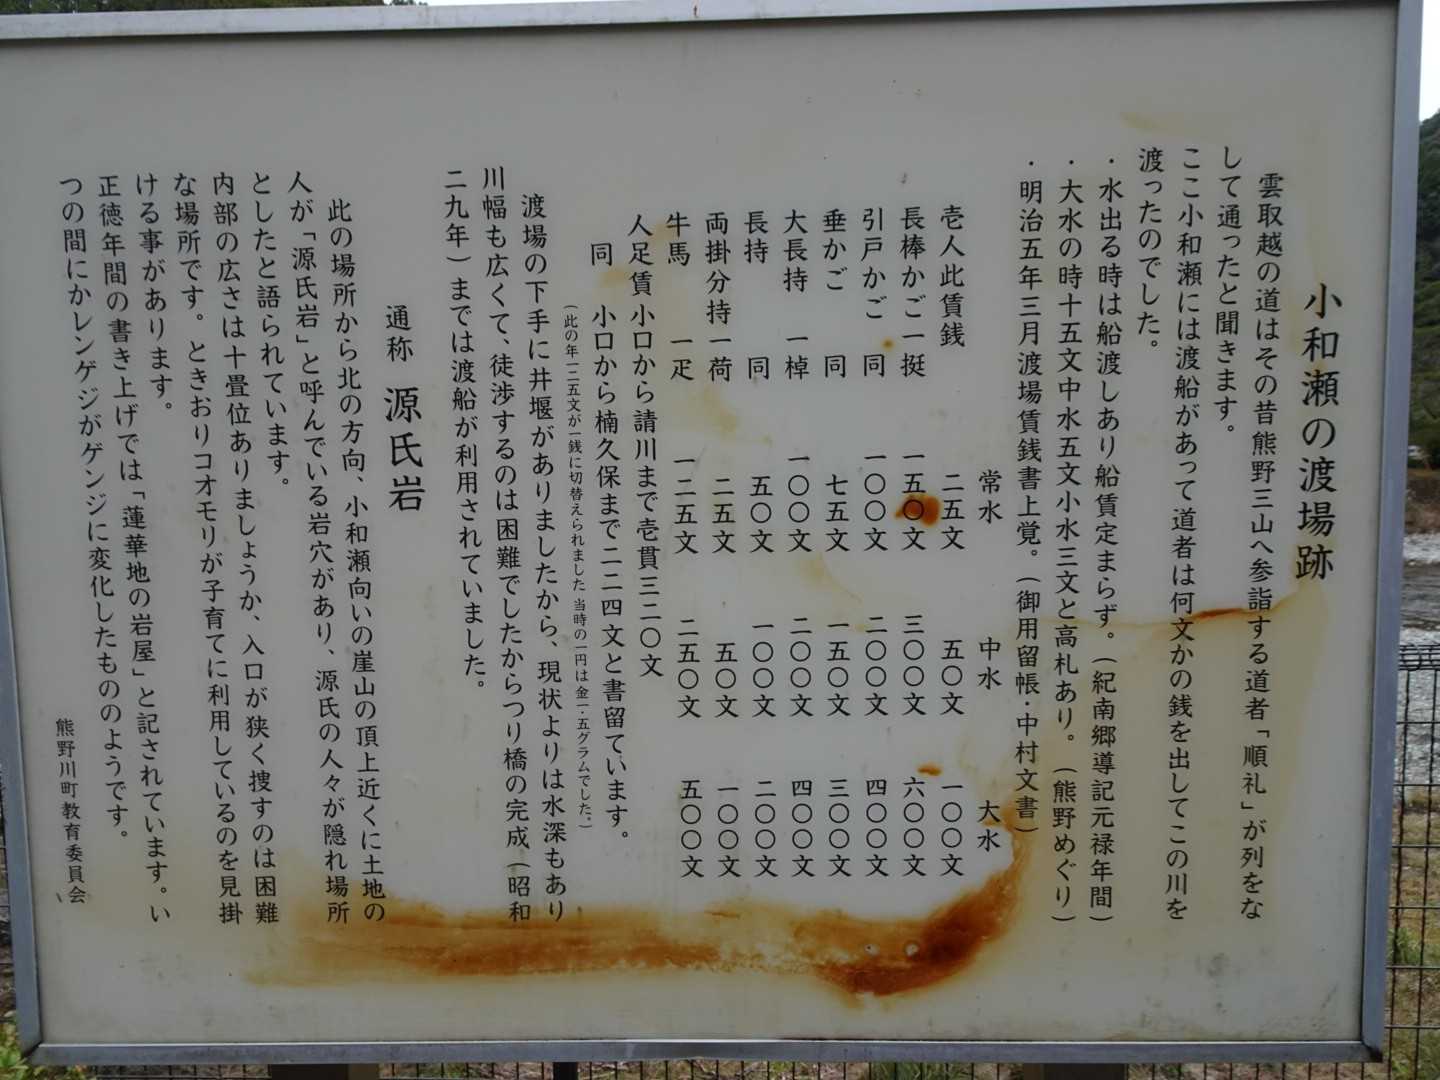 小和瀬の渡場跡
雲取越の道はその昔熊野三山へ参詣する道者「順礼」が列をな
して通ったと聞きます。
ここ小和瀬には渡船があって道者は何文かの銭を出してこの川を
渡ったのでした。
・水出る時は船渡しあり船賃定まらず。（紀南郷導記元禄年間）
・大水の時十五文中水五文小水三文と高札あり。（熊野めぐり）
・明治五年三月渡場賃銭書上覚。（御用留帳・中村文書）
常水 中水 大水
壱人此賃銭 二五文 五〇文 一〇〇文
長棒かご一挺 一五〇文 三〇〇文 六〇〇文
引戸かご 同 一〇〇文 二〇〇文 四〇〇文
垂かご 同 七五文 一五〇文 三〇〇文
大長持 一棹 一〇〇文 二〇〇文 四〇〇文
長持 同 五〇文 一〇〇文 二〇〇文
両掛分持一荷 二五文 五〇文 一〇〇文
牛馬 一疋 一二五文 二五〇文 五〇〇文
人足賃 小口から請川まで壱貫三二〇文
同 小口から楠久保まで二二四文と書留ています。
（此の年一二五文が一銭に切替えられました 当時の一円は金一・五グラムでした。）
渡場の下手に井堰がありましたから、現状よりは水深もあり
川幅も広くて、徒渉するのは困難でしたからつり橋の完成（昭和
二九年）までは渡船が利用されていました。
通称 源氏岩
此の場所から北の方向、小和瀬向いの崖山の頂上近くに土地の
人が「源氏岩」と呼んでいる岩穴があり、源氏の人々が隠れ場所
としたと語られています。
内部の広さは十畳位ありましょうか、入口が狭く捜すのは困難
な場所です。ときおりコオモリが子育てに利用しているのを見掛
ける事があります。
正徳年間の書き上げでは「蓮華地の岩屋」と記されています。い
つの間にかレンゲジがゲンジに変化したもののようです。
熊野川町教育委員会